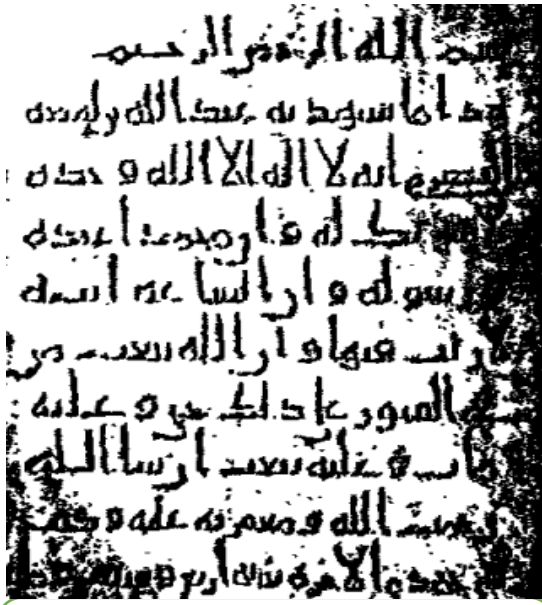 بسم الله الرحمن الرحيم
هذا ما شهد به عبد الله
انه لا اله الا الله وحده
لا شريك له وان محمدا عبده
ورسوله وان الساعه اتيه
لا ريب فيها وان الله يبعث من
في القبور على ذلك حيي وعليه
مات وعليه يبعث ان شا الله
رحمت الله عليه وكتب
الاخره سنه